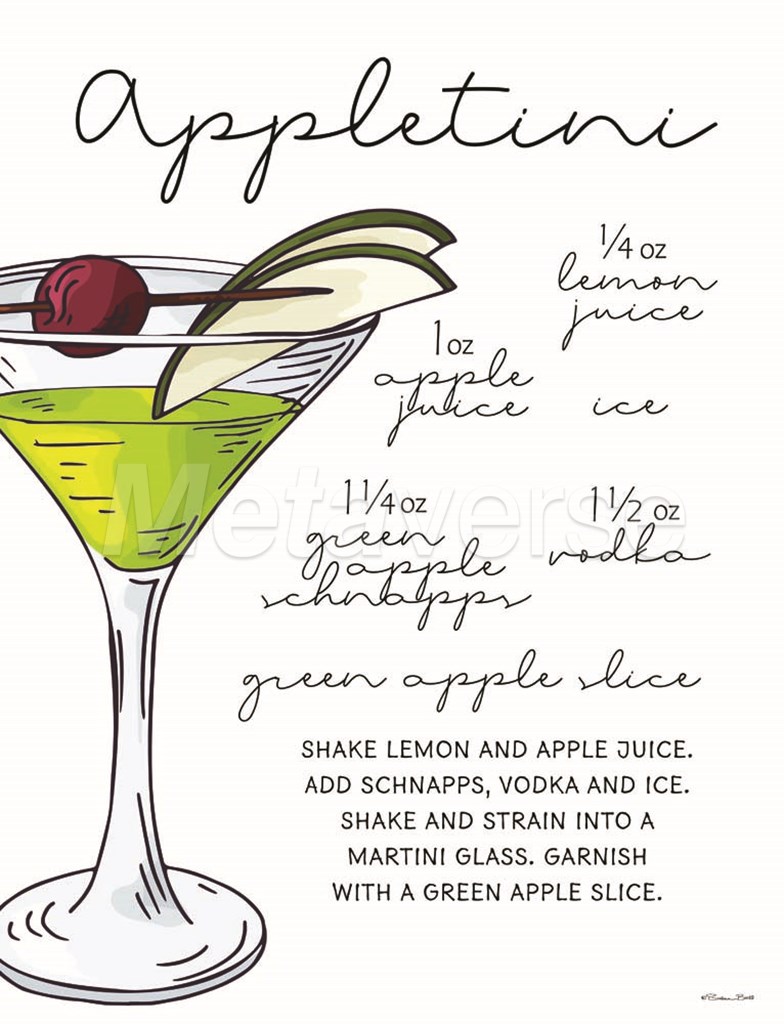 Appletini
1/4 oz
lemon
juice
1 oz
apple
juice
ice
1 1/4 oz
green
apple
schnapps
1 1/2 oz
vodka
green apple slice
SHAKE LEMON AND APPLE JUICE.
ADD SCHNAPPS, VODKA AND ICE.
SHAKE AND STRAIN INTO A
MARTINI GLASS. GARNISH
WITH A GREEN APPLE SLICE.
Metaverse